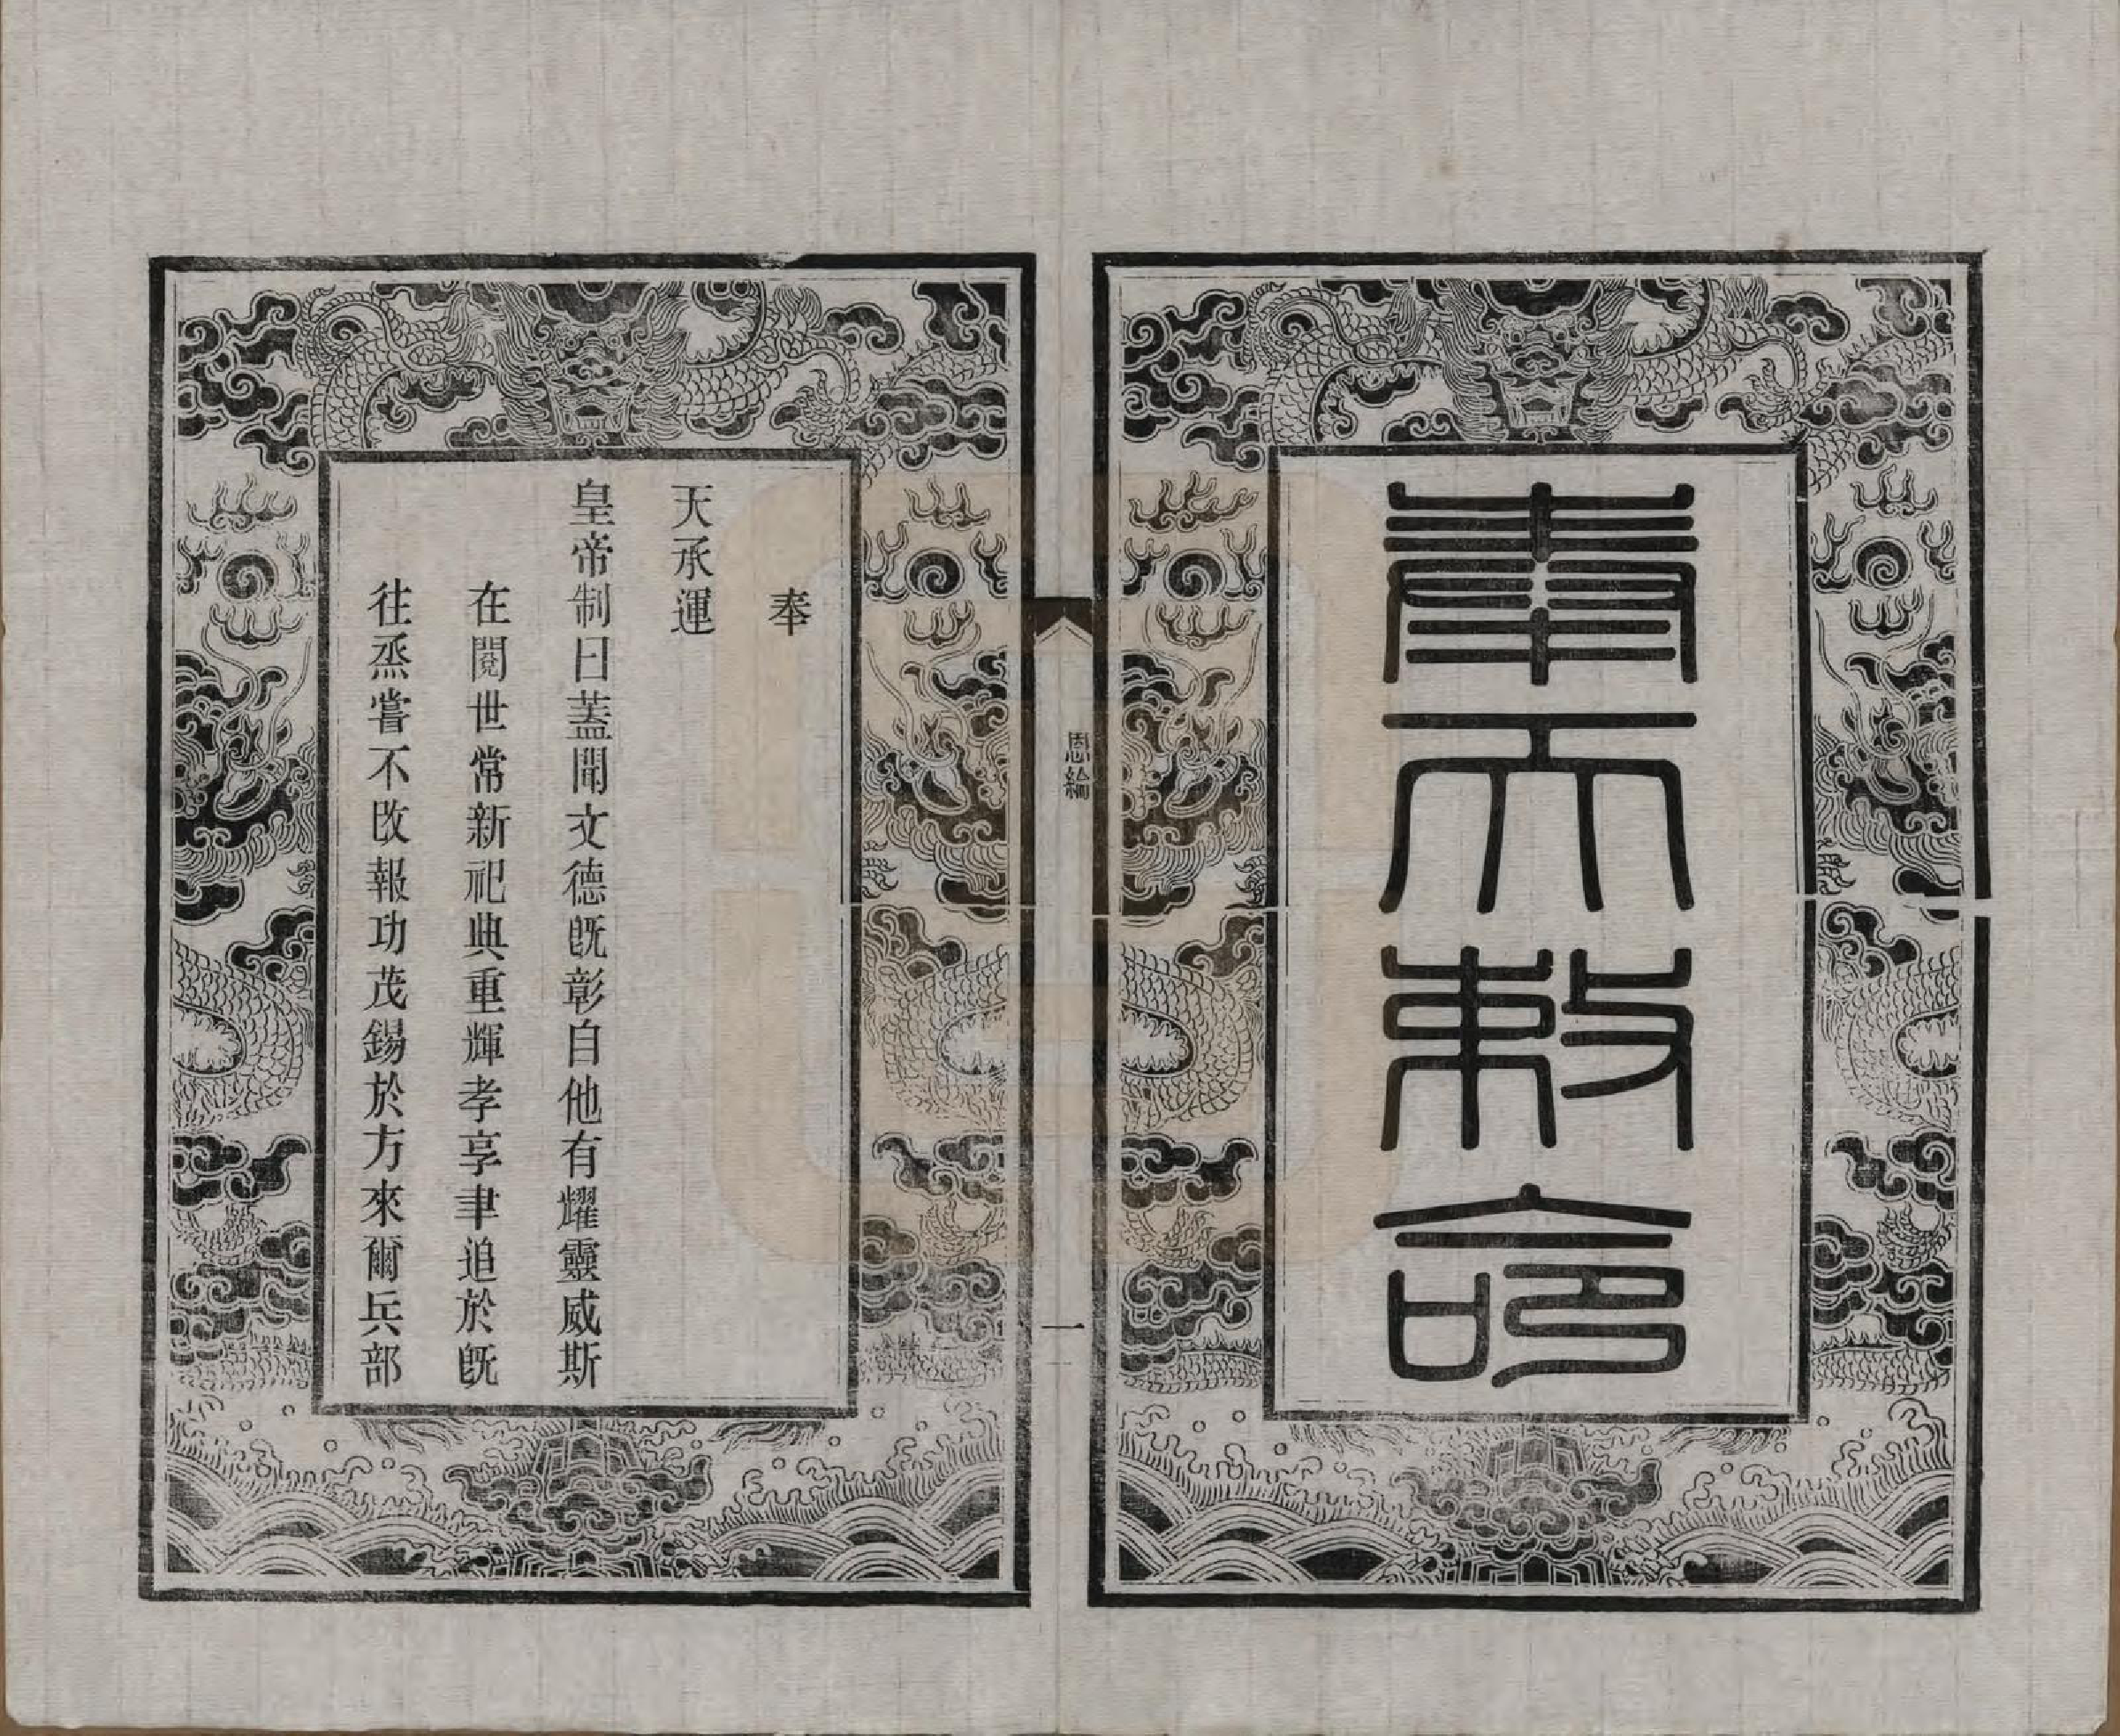 奉天敕命
恩綸
一
奉
天承運
皇帝制曰蓋聞文德旣彰自他有耀靈威斯
在閱世常新祀典重輝孝享聿追於旣
往烝嘗不改報功茂錫於方來爾兵部